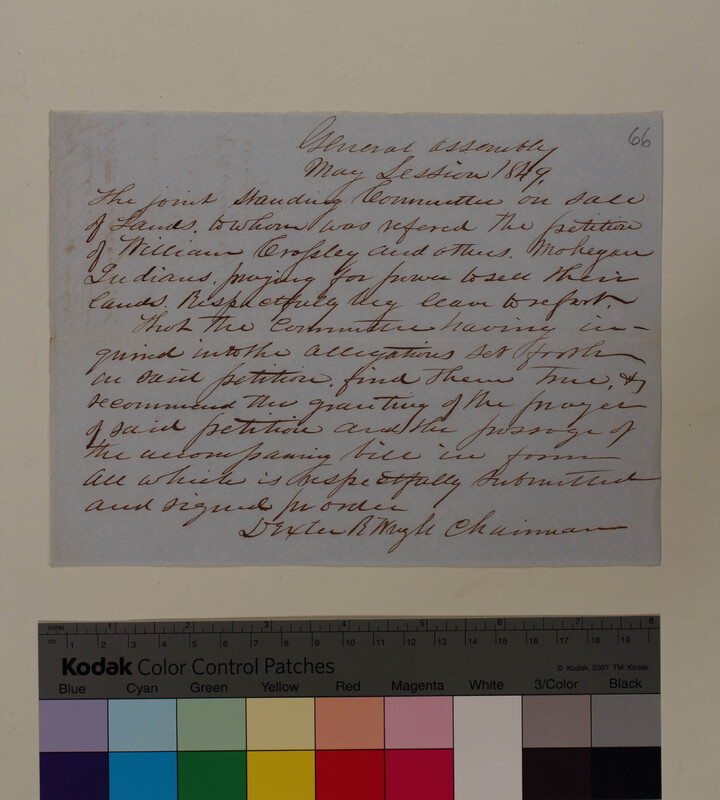 66
General assembly
May Session 1849,
The joint standing Committee on sale
of Lands, to whom was refered the petition
of William Crossley and others, Mohegan
Indians, praying for power to sell their
lands, Respectfully beg leave to report,
That the Committee having in-
quired into the allegations set forth
in said petition, find them True, &
recommend the granting of the prayer
of said petition and the passage of
the accompaning bill in form
All which is respectfully submitted
and signed pr order
Dexter R Wright Chairman
inches 1 2 3 4 5 6 7 8
cm 1 2 3 4 5 6 7 8 9 10 11 12 13 14 15 16 17 18 19
Kodak Color Control Patches
© Kodak, 2007 TM: Kodak
Blue Cyan Green Yellow Red Magenta White 3/Color Black